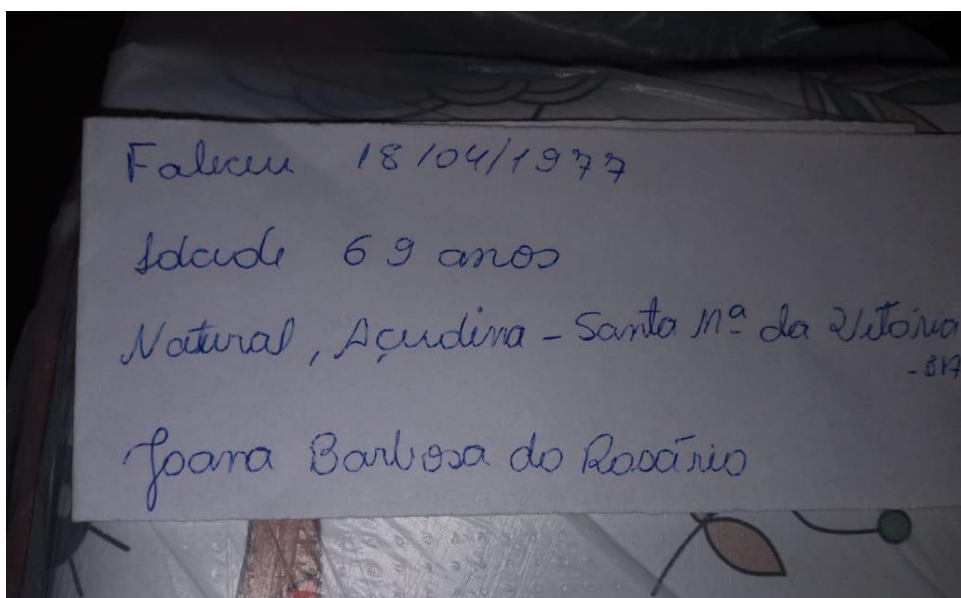 Faleceu 18/04/1977
Idade 69 anos
Natural, Açudina - Santa Mª da Vitória
- BA
Joana Barbosa do Rosário